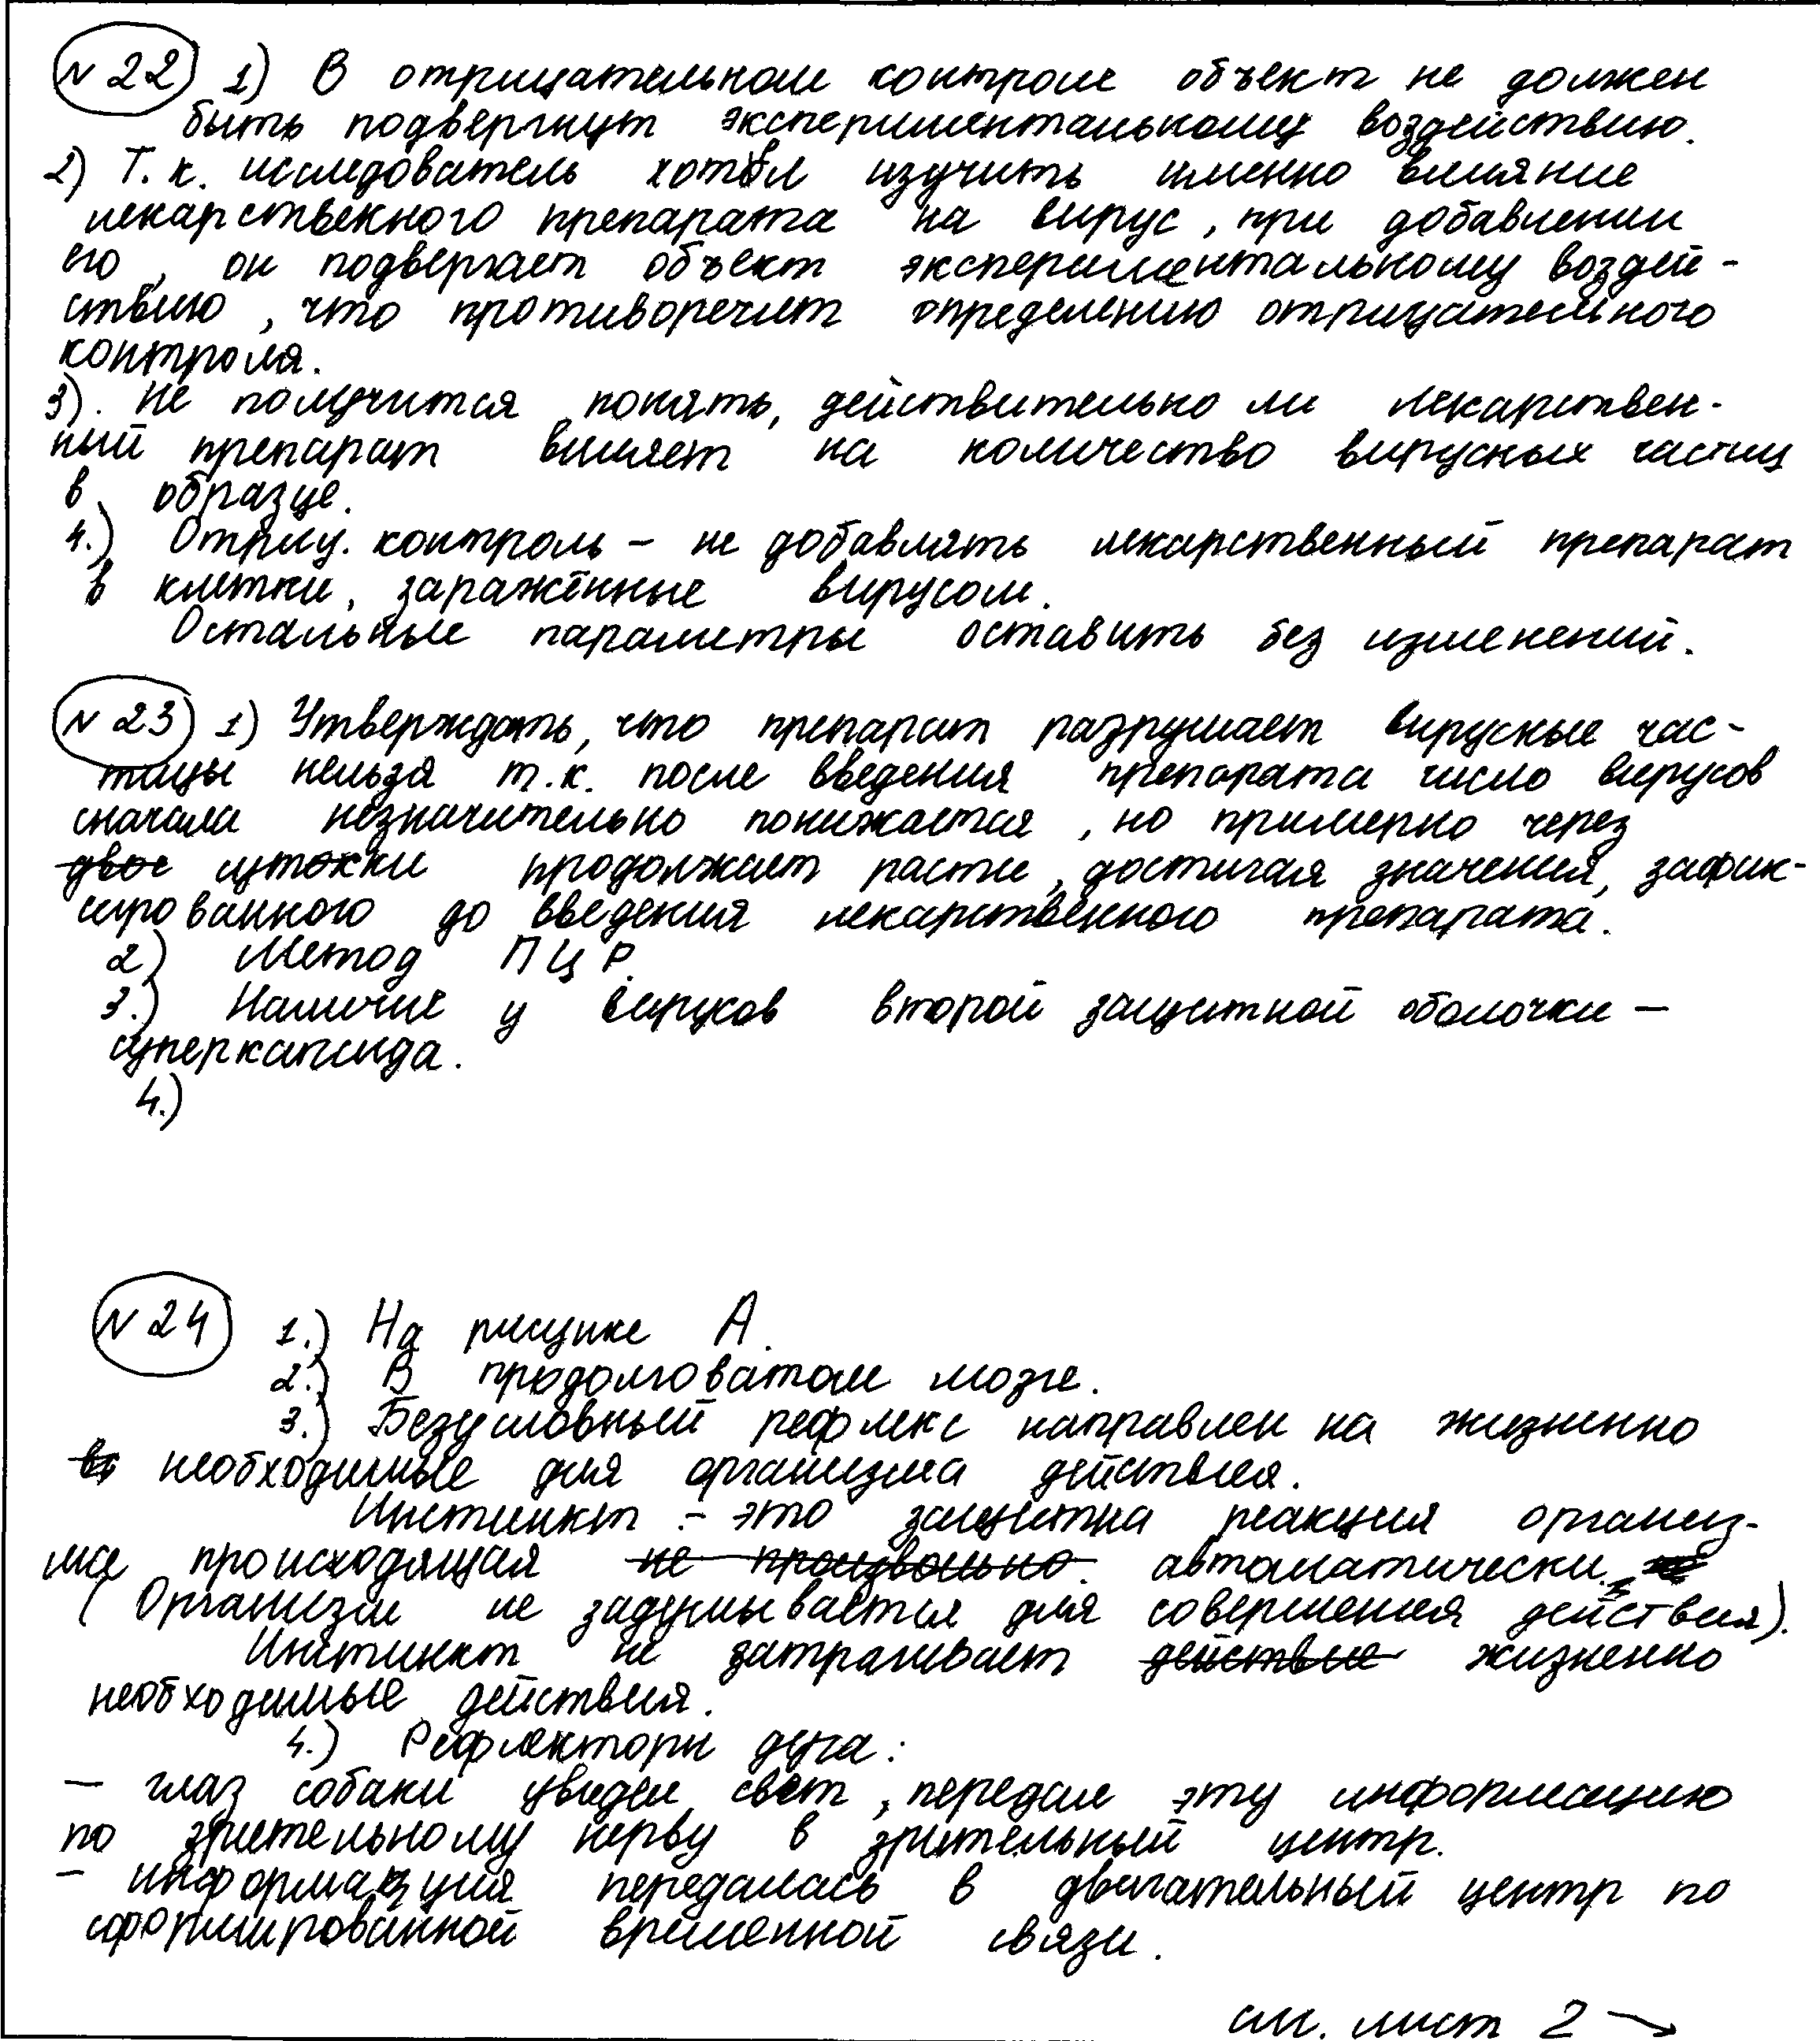 N 22 1) В отрицательном контроле объект не должен
быть подвергнут экспериментальному воздействию.
2) Т. к. исследователь хотел изучить именно влияние
лекарственного препарата на вирус, при добавлении
его, он подвергает объект экспериментальному воздей-
ствию, что противоречит определению отрицательного
контроля.
3). Не получится понять, действительно ли лекарствен-
ный препарат влияет на количество вирусных частиц
в образце.
4.) Отриц. контроль – не добавлять лекарственный препарат
в клетки, заражённые вирусом.
Остальные параметры оставить без изменений.
N 23 1) Утверждать, что препарат разрушает вирусные час-
тицы нельзя т.к. после введения препарата число вирусов
сначала незначительно понижается, но примерно через
двое сутокки продолжает расти, достигая значения, зафик-
сированного до введения лекарственного препарата.
2) Метод ПЦР.
3.) Наличие у вирусов второй защитной оболочки –
суперкапсида.
4.)
N 24 1.) На рисунке А.
2.) В продолговатом мозге.
3.) Безусловный рефлекс направлен на жизненно
необходимые для организма действия.
Инстинкт :- это защитна реакция организ-
ма происходящая не произвольно. автоматически.
(Организм не задумывается для совершения действия).
Инстинкт не затрагивает действие жизненно
необходимые действия.
4.) Рефлекторн дуга:
– глаз собаки увидел свет, передал эту информацию
по зрительному нерву в зрительный центр.
– информация передалась в двигательный центр по
сформированной временной связи.
см. лист 2 →